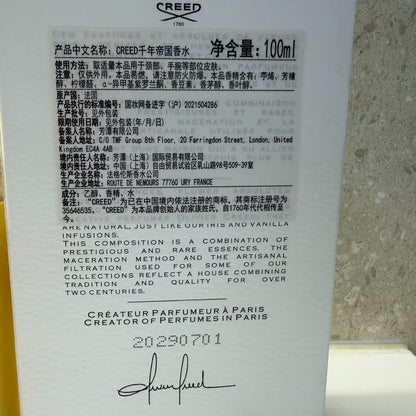 CREED
1760
产品中文名称：CREED千年帝国香水 净含量：100ml
使用方法：取适量本品用于颈部、手腕等部位皮肤。
注意：仅供外用。本品易燃，请注意防火防爆。本品含香精含有：苧烯、芳樟
醇、柠檬醛、α-异甲基紫罗兰酮、香豆素、香茅醇、香叶醇。
原产国：法国
产品执行的标准编号：国妆网备进字（沪）2021504286
批号：见外包装
限期使用日期：见外包装（年/月/日）
备案人名称：芳潭有限公司
备案人地址：C/O TMF Group 8th Floor, 20 Farringdon Street, London, United
Kingdom EC4A 4AB
境内责任人名称：芳潭（上海）国际贸易有限公司
境内责任人地址：中国（上海）自由贸易试验区乳山路98号509-39室
生产企业名称：法格伦斯香水公司
生产企业地址：ROUTE DE NEMOURS 77760 URY FRANCE
成分：乙醇、香精、水
备注："CREED"为已在中国境内依法注册的商标，其商标注册号为
35646535。"CREED"为本品牌创始人的家族姓氏，自1760年代代相传至
今。
ARE NATURAL, JUST LIKE OUR IRIS AND VANILLA
INFUSIONS.
THIS COMPOSITION IS A COMBINATION OF
PRESTIGIOUS AND RARE ESSENCES. THE
MACERATION METHOD AND THE ARTISANAL
FILTRATION USED FOR SOME OF OUR
COLLECTIONS REFLECT A HOUSE COMBINING
TRADITION AND QUALITY FOR OVER
TWO CENTURIES.
CRÉATEUR PARFUMEUR À PARIS
CREATOR OF PERFUMES IN PARIS
20290701